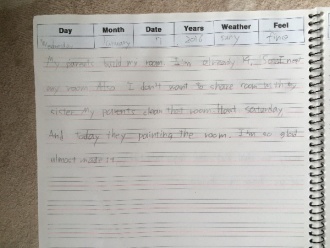 Day Month Date Years Weather Feel
Wednesday January 5 sunny fine
My parents build my room. I'm already
my room. Also I don't want to share room with my
sister. My parents clean that room last saturday.
And today they painting the room. I'm so glad
almost made it.